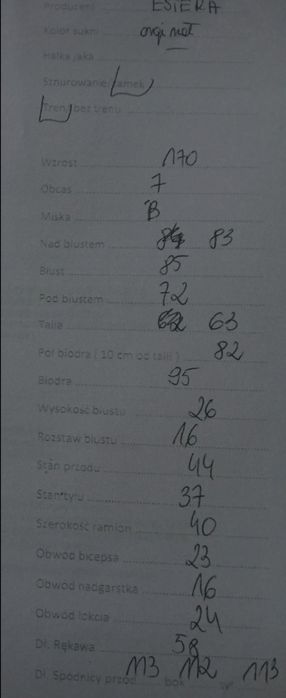 Producent ESTERA
Kolor sukni orginał
Halka jaka
Sznurowanie/zamek
Tren/bez trenu
Wzrost 170
Obcas 7
Miska B
Nad biustem 83
Biust 85
Pod biustem 72
Talia 63
Pół biodra ( 10 cm od talii ) 82
Biodra 95
Wysokość biustu 26
Rozstaw biustu 16
Stan przodu 44
Stan tyłu 37
Szerokość ramion 40
Obwód bicepsa 23
Obwód nadgarstka 16
Obwód łokcia 24
Dł. Rękawa 58
Dł. Spódnicy przód 113 bok 112 tył 113